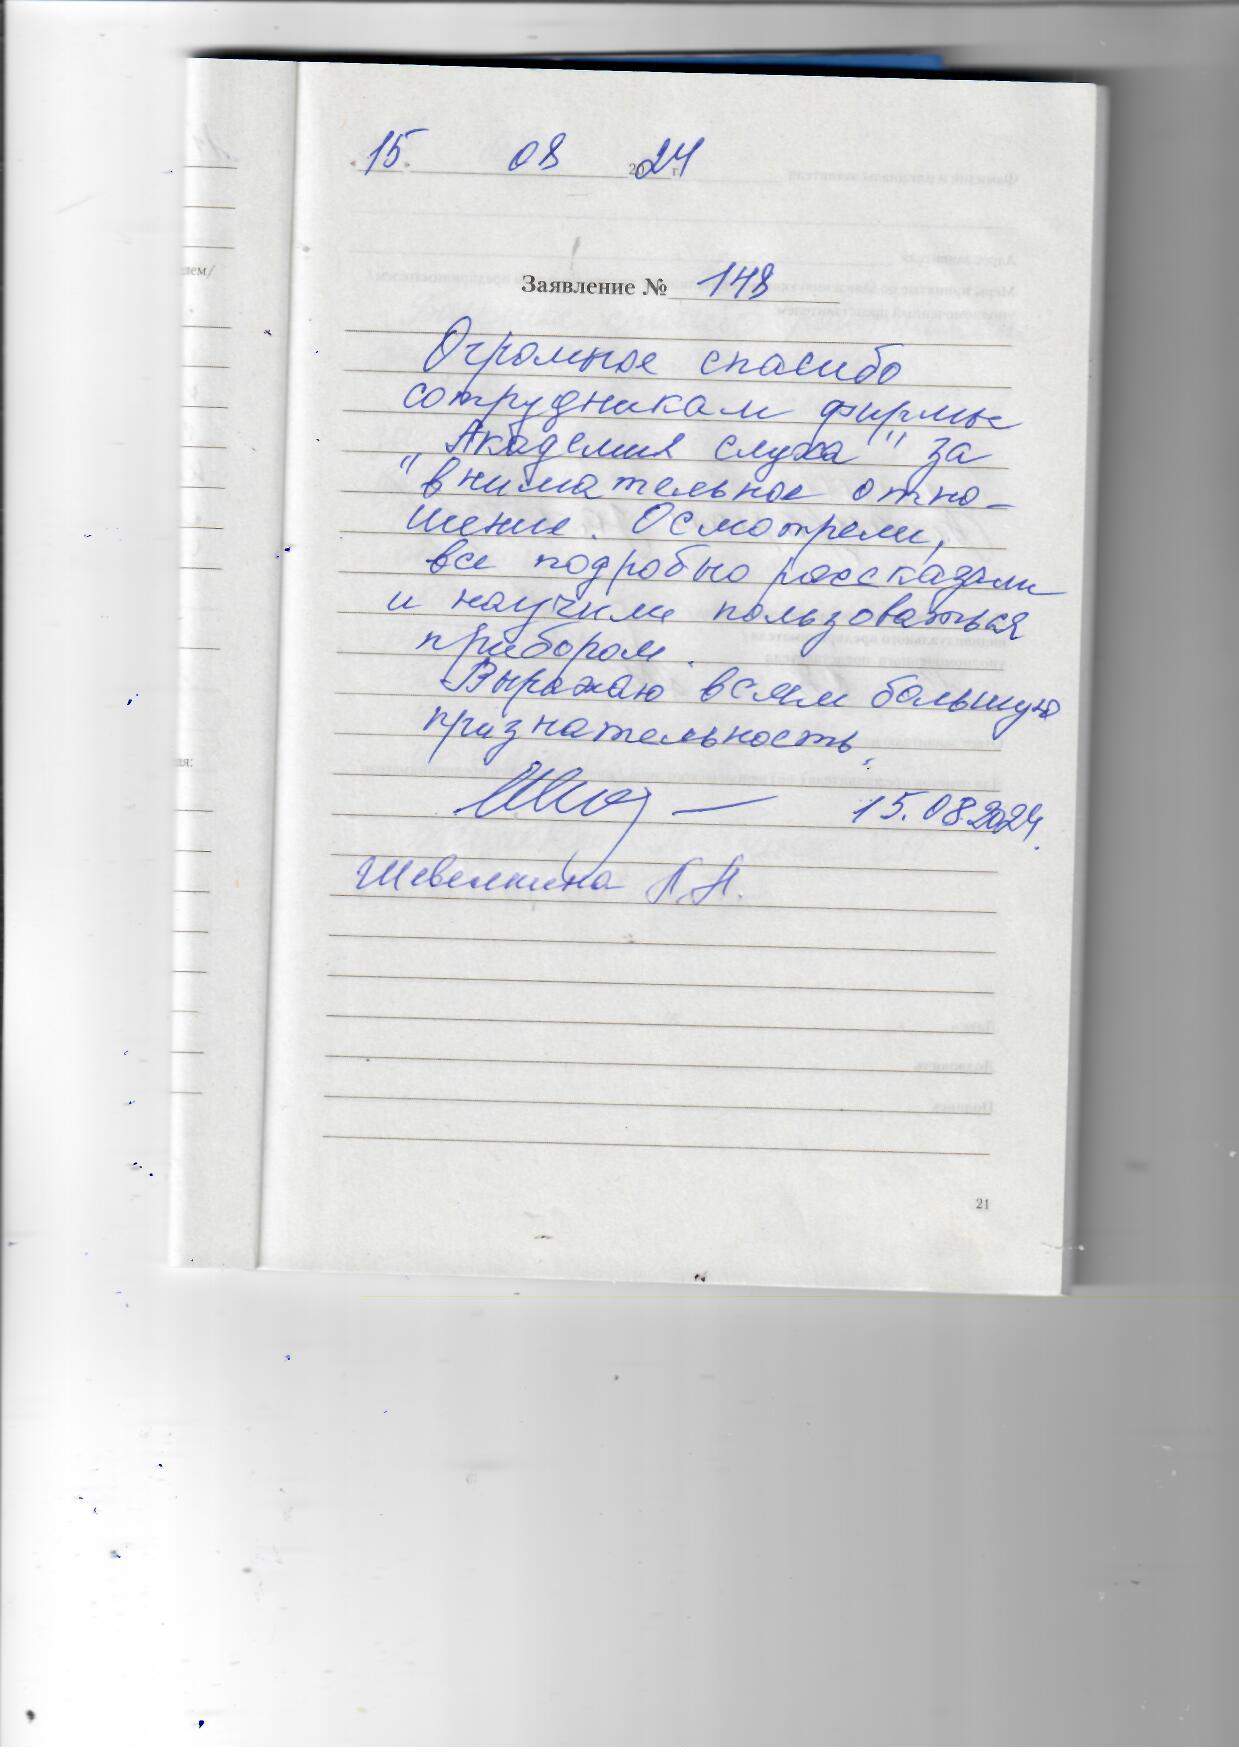 «15» 08 2024 г.
Заявление № 148
Огромное спасибо
сотрудникам фирмы
"Академия слуха" за
внимательное отно-
шение. Осмотрели,
все подробно рассказали
и научили пользоваться
прибором.
Выражаю всем большую
признательность.
15.08.2024.
Л.Н.
елем/
ая:
21